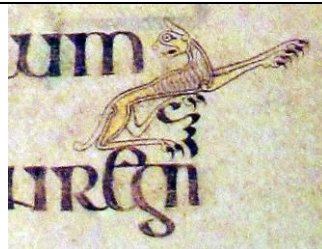 um
uregn